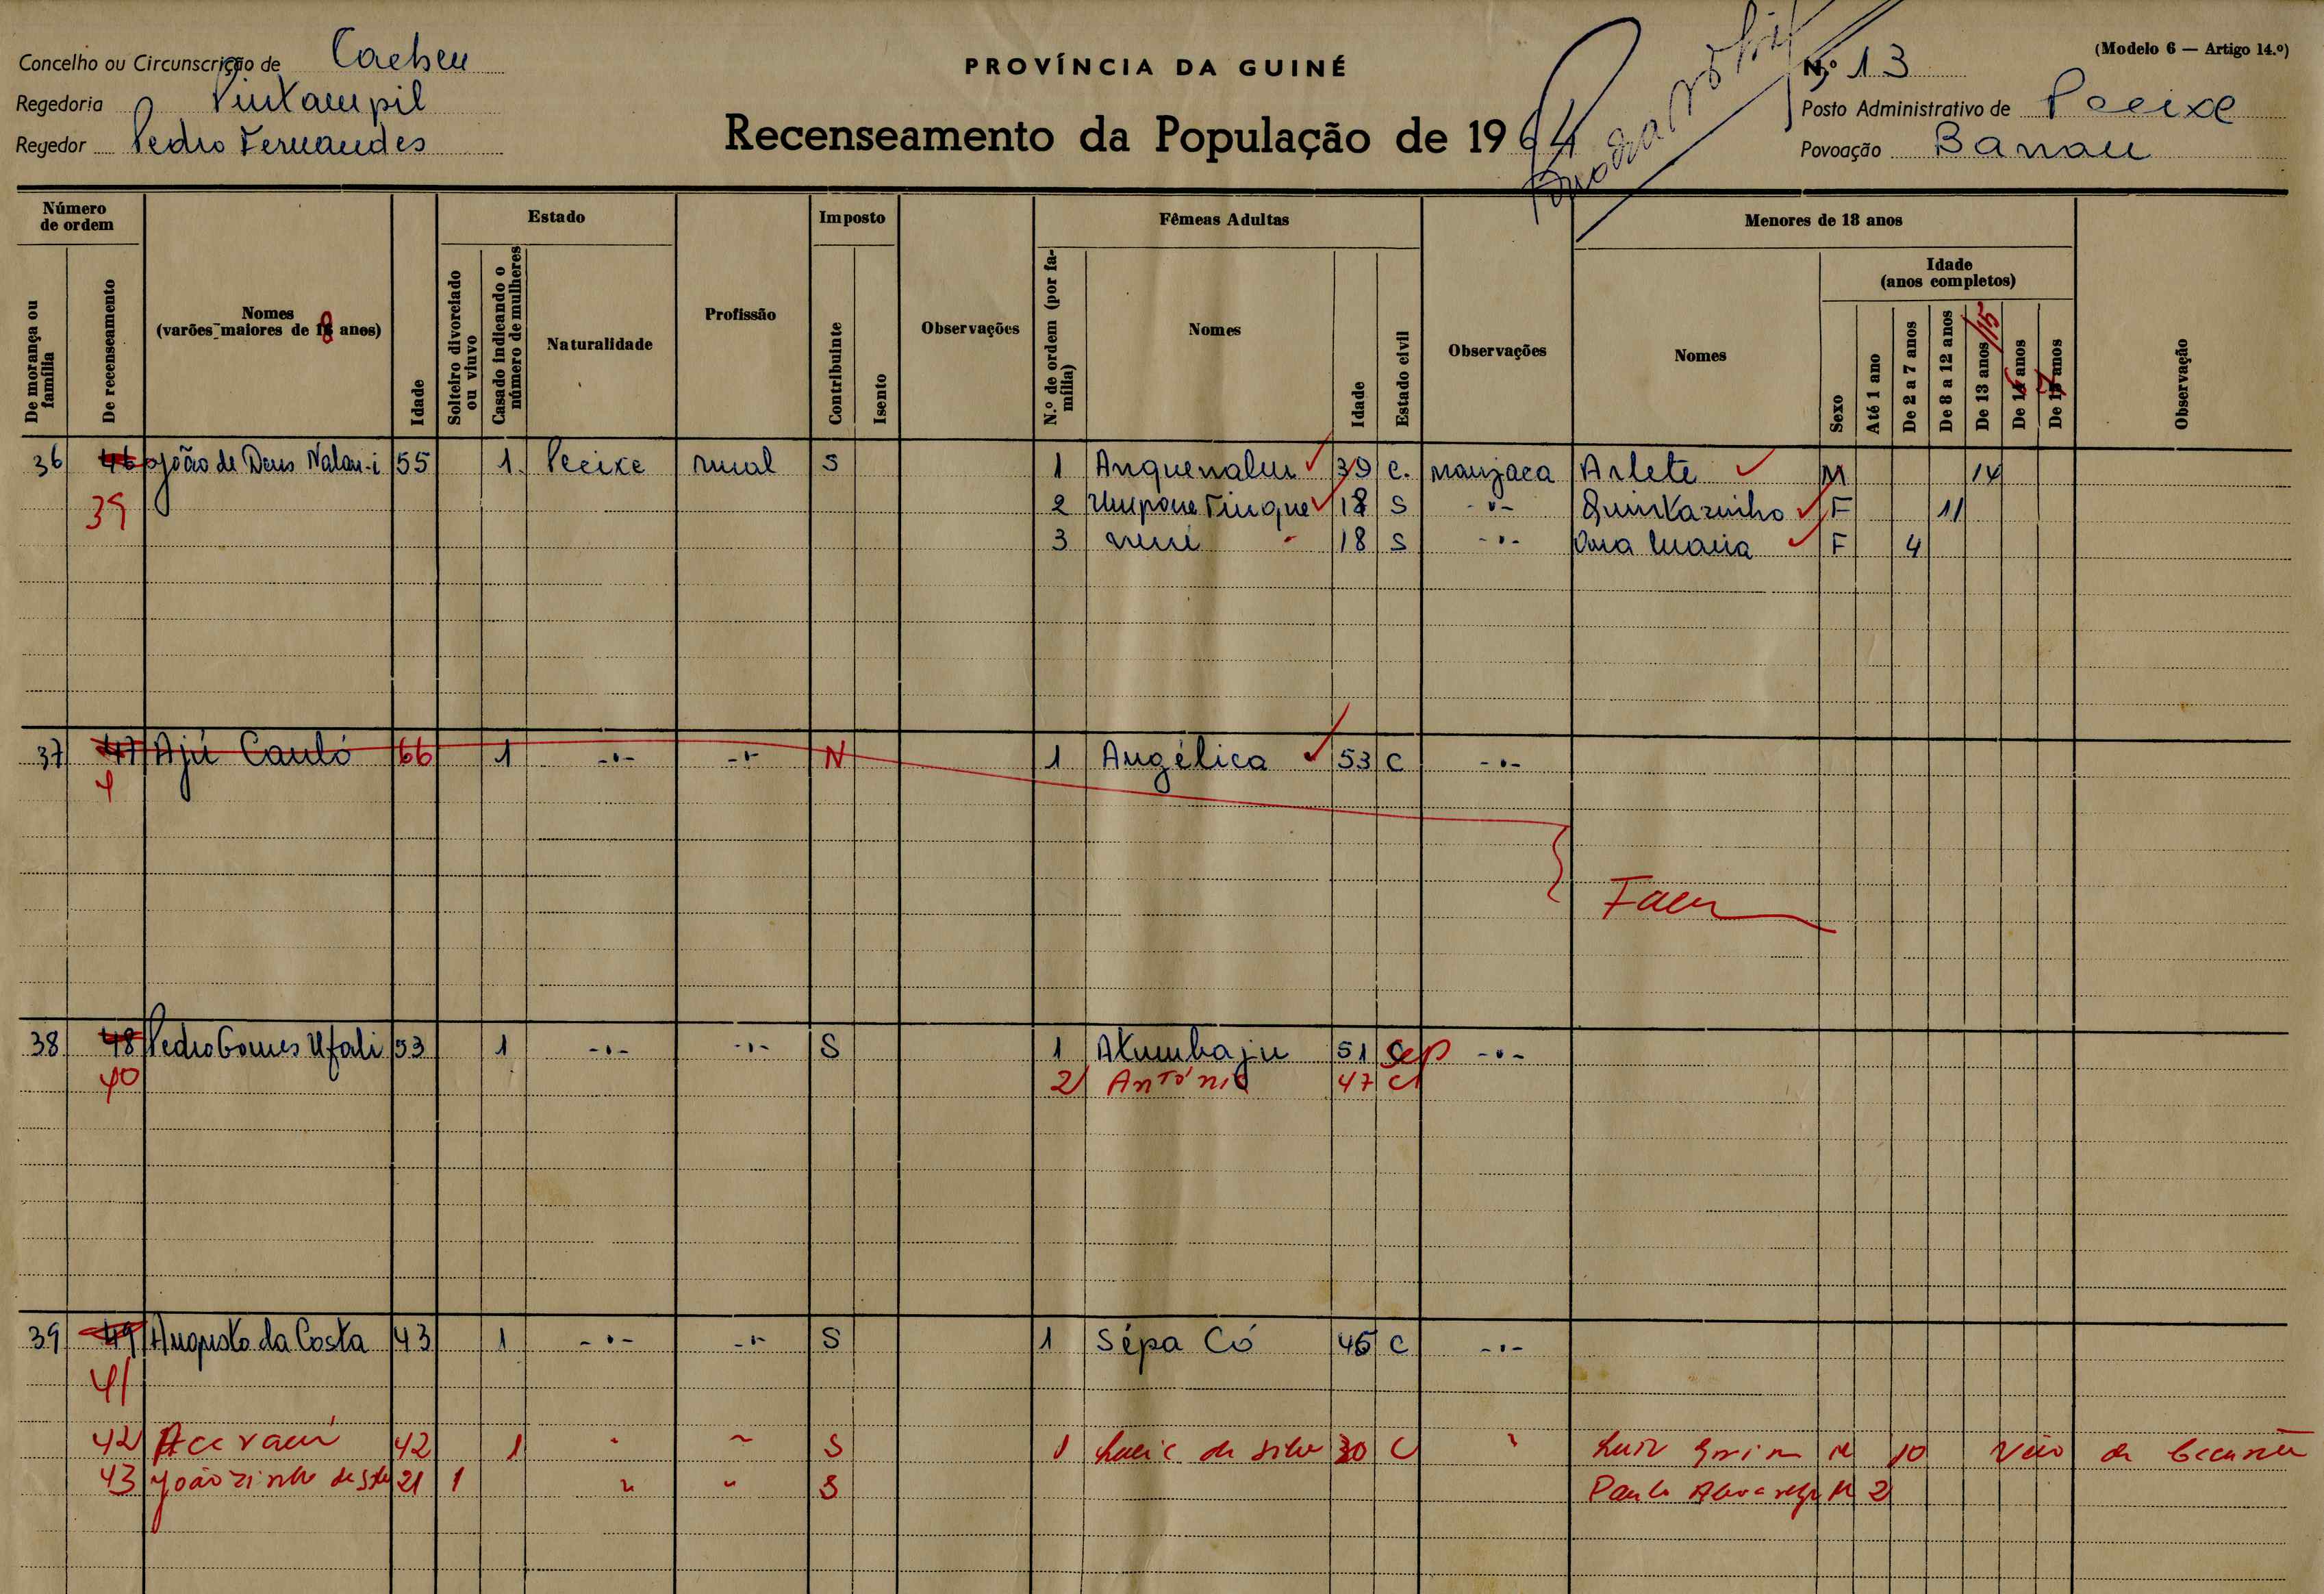 Concelho ou Circunscrição de Cacheu
Regedoria Pintampil
Regedor Pedro Fernandes
PROVÍNCIA DA GUINÉ
Recenseamento da População de 1964
(Modelo 6 — Artigo 14.º)
N.º 13
Posto Administrativo de Pecixe
Povoação Banau
Número de ordem
De morança ou família
De recenseamento
Nomes (varões maiores de 18 anos)
Idade
Estado
Solteiro divorciado ou viuvo
Casado indicando o número de mulheres
Naturalidade
Profissão
Imposto
Contribuinte
Isento
Observações
Fêmeas Adultas
N.º de ordem (por família)
Nomes
Idade
Estado civil
Observações
Menores de 18 anos
Nomes
Sexo
Idade (anos completos)
Até 1 ano
De 2 a 7 anos
De 8 a 12 anos
De 13 anos /15
De 16 anos
De 17 anos
Observação
36 46 João de Deus Nalan-i 55 1 Pecixe rural S 1 Anquenalur 39 C. manjaca Arlete M 14
39 2 Umpone Tinque 18 S -"- Quintazinho F 11
3 neni 18 S -"- Ana Maria F 4
37 47 Ajú Cauló 66 1 -"- -"- N 1 Angélica 53 C -"-
Falec
38 48 Pedro Gomes Ufali 53 1 -"- -"- S 1 Atumbaju 51 C Sep -"-
40 2 António 47 C
39 49 Augusto da Costa 43 1 -"- -"- S 1 Sépa Có 45 C -"-
41
42 42 1 " " S 1 da Silva 30 C " Luiz M 10 Veio de
43 Joãozinho da Silva 21 1 " " S Paulo M 2